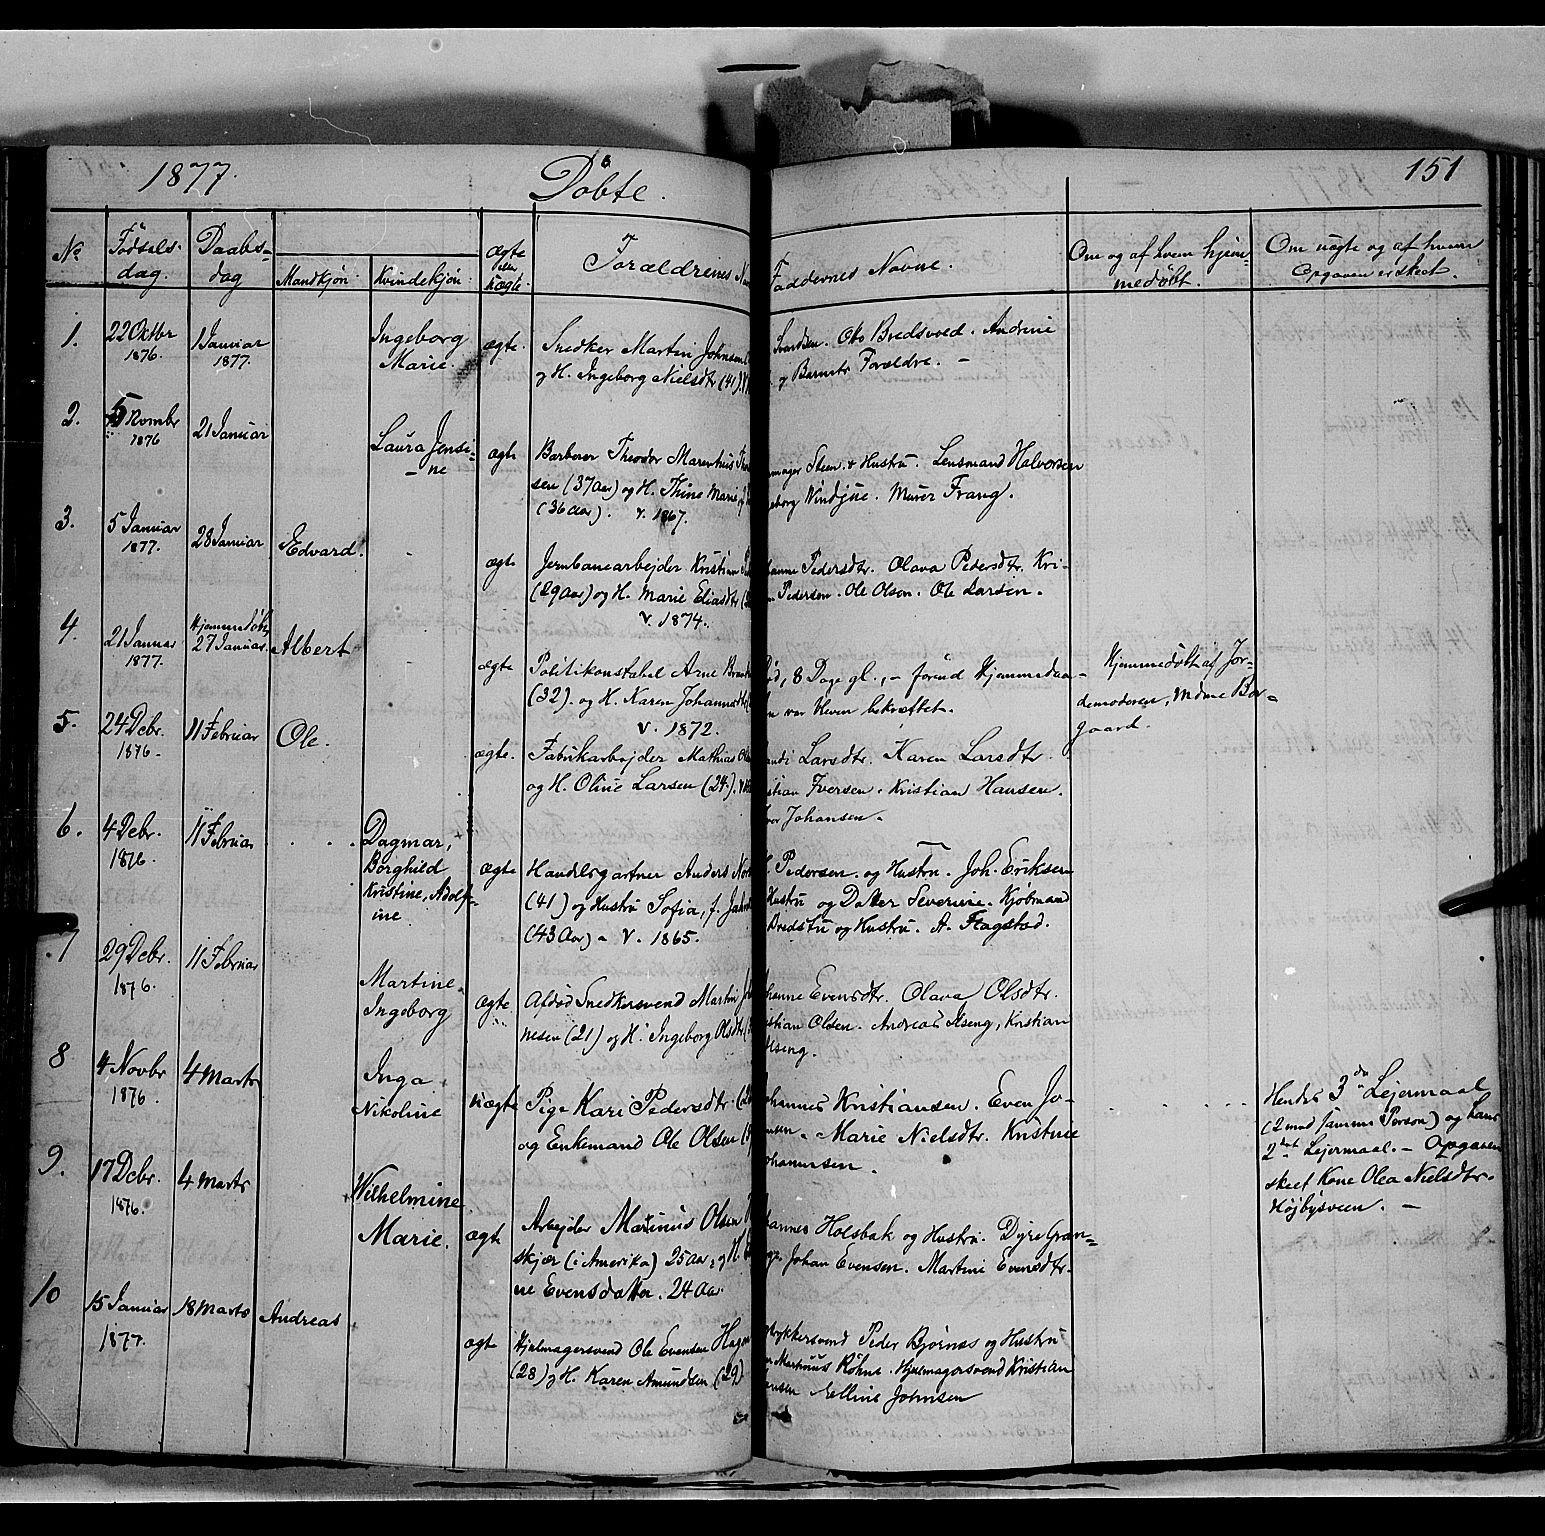 1877.
Döbte.
151
No
Födsels-
dag.
Daabs-
dag
Mandkjön
Kvindekjön
ægte
eller
uægte.
Forældrenes
Faddernes Navne.
Om og af hvem hjem-
medöbt.
Om uægte og af hvem
Opgaven er skeet.
1.
22 Octbr
1876.
1 Januar
1877.
Ingeborg
Marie.
ægte.
Snedker Martin Johnsen
og H. Ingeborg Nielsdtr (41).
Otto Bredsved. Andrine
og Barnets Forældre. —
2.
5 Novmbr
1876
21 Januar
Laura Jensi-
ne
ægte
Barberer Theodor Marenthius
sen (37 Aar) og H. Thine Marie
(36 aar). v. 1867.
Steen. & Hustru. Lensmand Halvorsen
Vindjue. Murer Frang.
3.
5 Januar
1877.
28 Januar
Edvard.
ægte
Jernbanearbejder Kristian
(29 Aar) og H. Marie Eliasdtr
v. 1874.
Pedersdtr. Olava Pedersdtr. Kri-
Pedersen. Ole Olsen. Ole Larsen.
4.
21 Januar
1877.
Hjemmedöbt
27 Januar.
Albert
ægte
Politikonstabel Arne
(32). og H. Karen Johannesdtr
v. 1872.
8 Dage gl., — forend Hjemmedaa-
ven var bleven bekræftet.
Hjemmedöbt af Jor-
demoderen, Mdme Bor-
gaard.
5.
24 Debr.
1876.
11 Februar
Ole.
ægte.
Fabrikarbejder Mathias
og H. Oline Larsen (24).
Larsdtr. Karen Larsdtr.
Iversen. Kristian Hansen.
Johansen.
6.
4 Debr.
1876.
11 Februar
Dagmar,
Borghild
Kristine, Adolf-
ine
ægte
Handelsgartner Anders
(41) og Hustru Sofia, f.
(43 Aar) v. 1865.
Pedersen. og Hustru. Joh. Eriksen
Hustru og Datter Severine. Kjöbmand
Bredstu og Hustru. A. Flagstad.
7
29 Debr.
1876.
11 Februar
Martine
Ingeborg
ægte
Afdöd Snedkersvend Martin
nesen (21) og H. Ingeborg Olsdtr
Evensdtr. Olava Olsdtr.
Olsen. Andreas Ilseng, Kristian
Ilseng.
8
4 Novbr
1876.
4 Marts
Inga
Nikoline
uægte
Pige Kari Pedersdtr.
og Enkemand Ole Olsen
Kristiansen. Even Jo-
Marie Nielsdtr. Kristine
Johannsen.
Hendes 3de Lejermaal
(2 med samme Person) og hans
2det Lejermaal. — Opgaven
skeet Kone Olea Nielsdtr.
Höjbysveen. —
9.
17 Debr.
1876.
4 Marts
Wilhelmine
Marie.
ægte
Arbejder Martinus Olsen
skjær (i Amerika) 25 aar, og H.
ne Evensdatter. 24 Aar.
Holsbak og Hustru. Dyre Gran-
Johan Evensen. Martine Evensdtr.
10
15 Januar
1877.
18 Marts
Andreas
ægte
Hjulmagersvend Ole Evensen
(28) og H. Karen Amundsen (29)
Peder Björnæs og Hustru
Röhne. Hjulmagersvend Kristian
Elline Johnsen